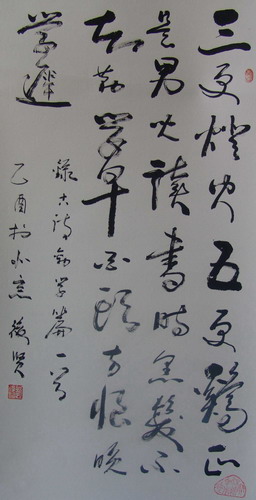 三更燈火五更鷄正
是男兒讀書時黑髮不
知勤學早白頭方恨晚
學遲
錄古詩勸學篇一首
乙酉於小窗賢